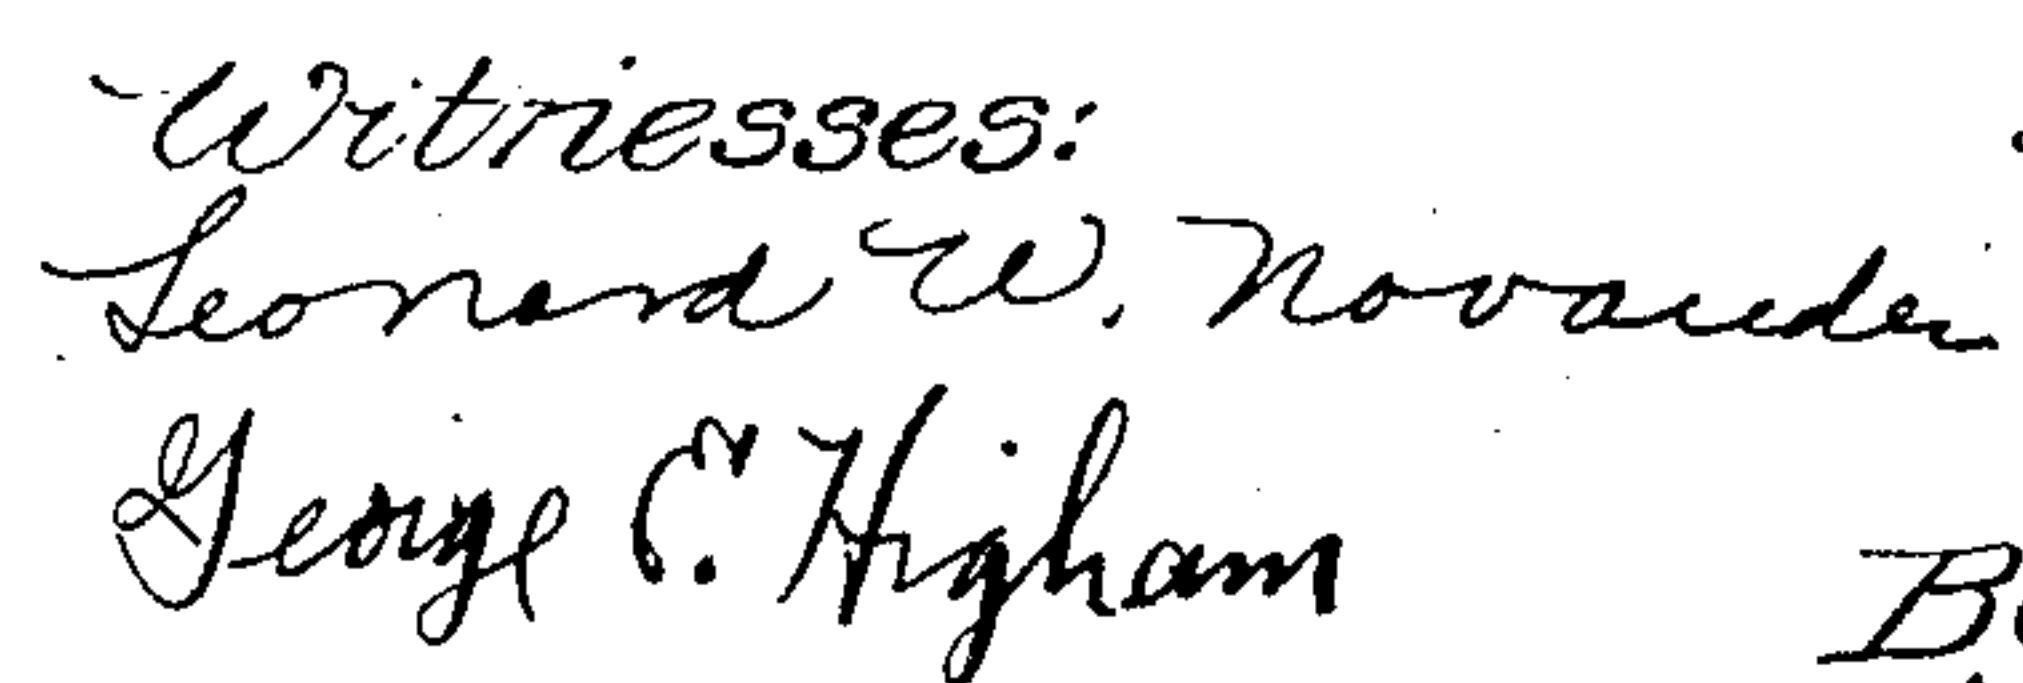 Witnesses:
Leonard W. Novander
George C. Higham